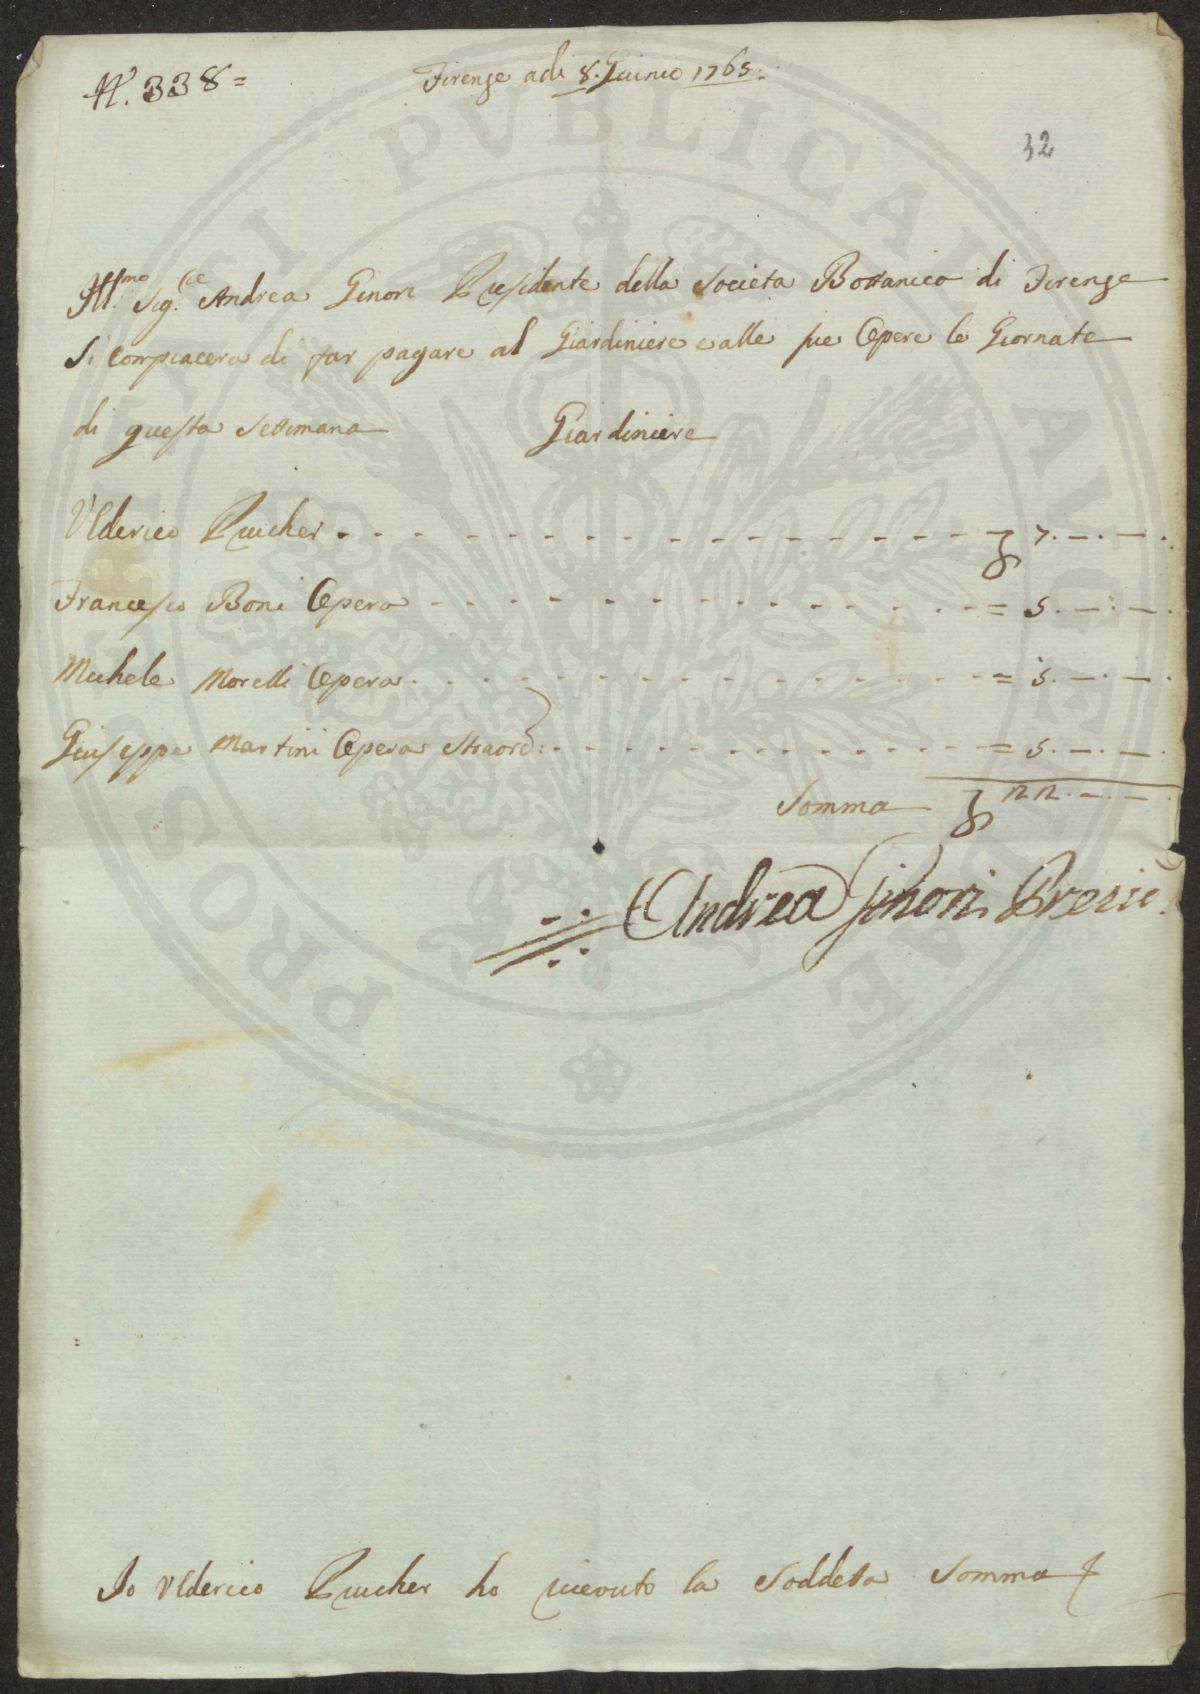 N. 338 =
Firenze adi 8. Giuino 1765.
32
Ill.mo Sig.re Andrea Ginori Presidente della Societa Bottanica di Firenze
Si Compiacera di far pagare al Giardiniere e alle sue Opere le Giornate
di questa Settimana
Giardiniere
Ulderico Pruicher . - - - - 7. — . — .
Francesco Boni Opera - - - - = 5. — . — .
Michele Morelli Opera - - - - = 5. — . — .
Giuseppe Martini Opera Straord: - - - - = 5. — . — .
Somma 22. — . — .
Andrea Ginori Presid
Io Ulderico Pruicher ho riceuto la Soddetta Somma
PROSPERITATI PUBLICAE AUGENDAE